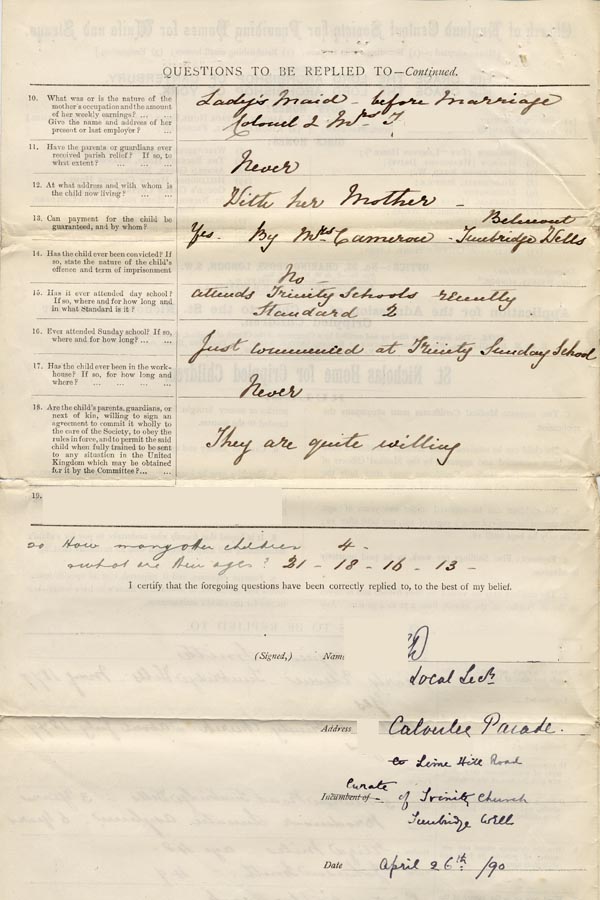 QUESTIONS TO BE REPLIED TO—Continued.
10. What was or is the nature of the
mother's occupation and the amount
of her weekly earnings? ... ...
Give the name and address of her
present or last employer? ...
Lady's Maid - before Marriage
Colonel & Mrs T
11. Have the parents or guardians ever
received parish relief? If so, to
what extent? ... ... ...
Never
12. At what address and with whom is
the child now living? ... ...
With her Mother -
13. Can payment for the child be
guaranteed, and by whom? ...
Yes. By Mrs Cameron - Belmont
Tunbridge Wells
14. Has the child ever been convicted? If
so, state the nature of the child's
offence and term of imprisonment
No
15. Has it ever attended day school?
If so, where and for how long and
in what Standard is it? ...
attends Trinity Schools recently
Standard 2
16. Ever attended Sunday school? If so,
where and for how long? ...
Just commenced at Trinity Sunday School
17. Has the child ever been in the work-
house? If so, for how long and
where? ... ... ... ...
Never
18. Are the child's parents, guardians, or
next of kin, willing to sign an
agreement to commit it wholly to
the care of the Society, to obey the
rules in force, and to permit the said
child when fully trained to be sent
to any situation in the United
Kingdom which may be obtained
for it by the Committee? ... ...
They are quite willing
19.
20 How many other children 4 -
& what are their ages? 21 - 18 - 16 - 13 -
I certify that the foregoing questions have been correctly replied to, to the best of my belief.
(Signed,) Name
Local Secy
Address Calverley Parade.
Lime Hill Road
Curate
Incumbent of of Trinity Church
Tunbridge Well
Date April 26th /90